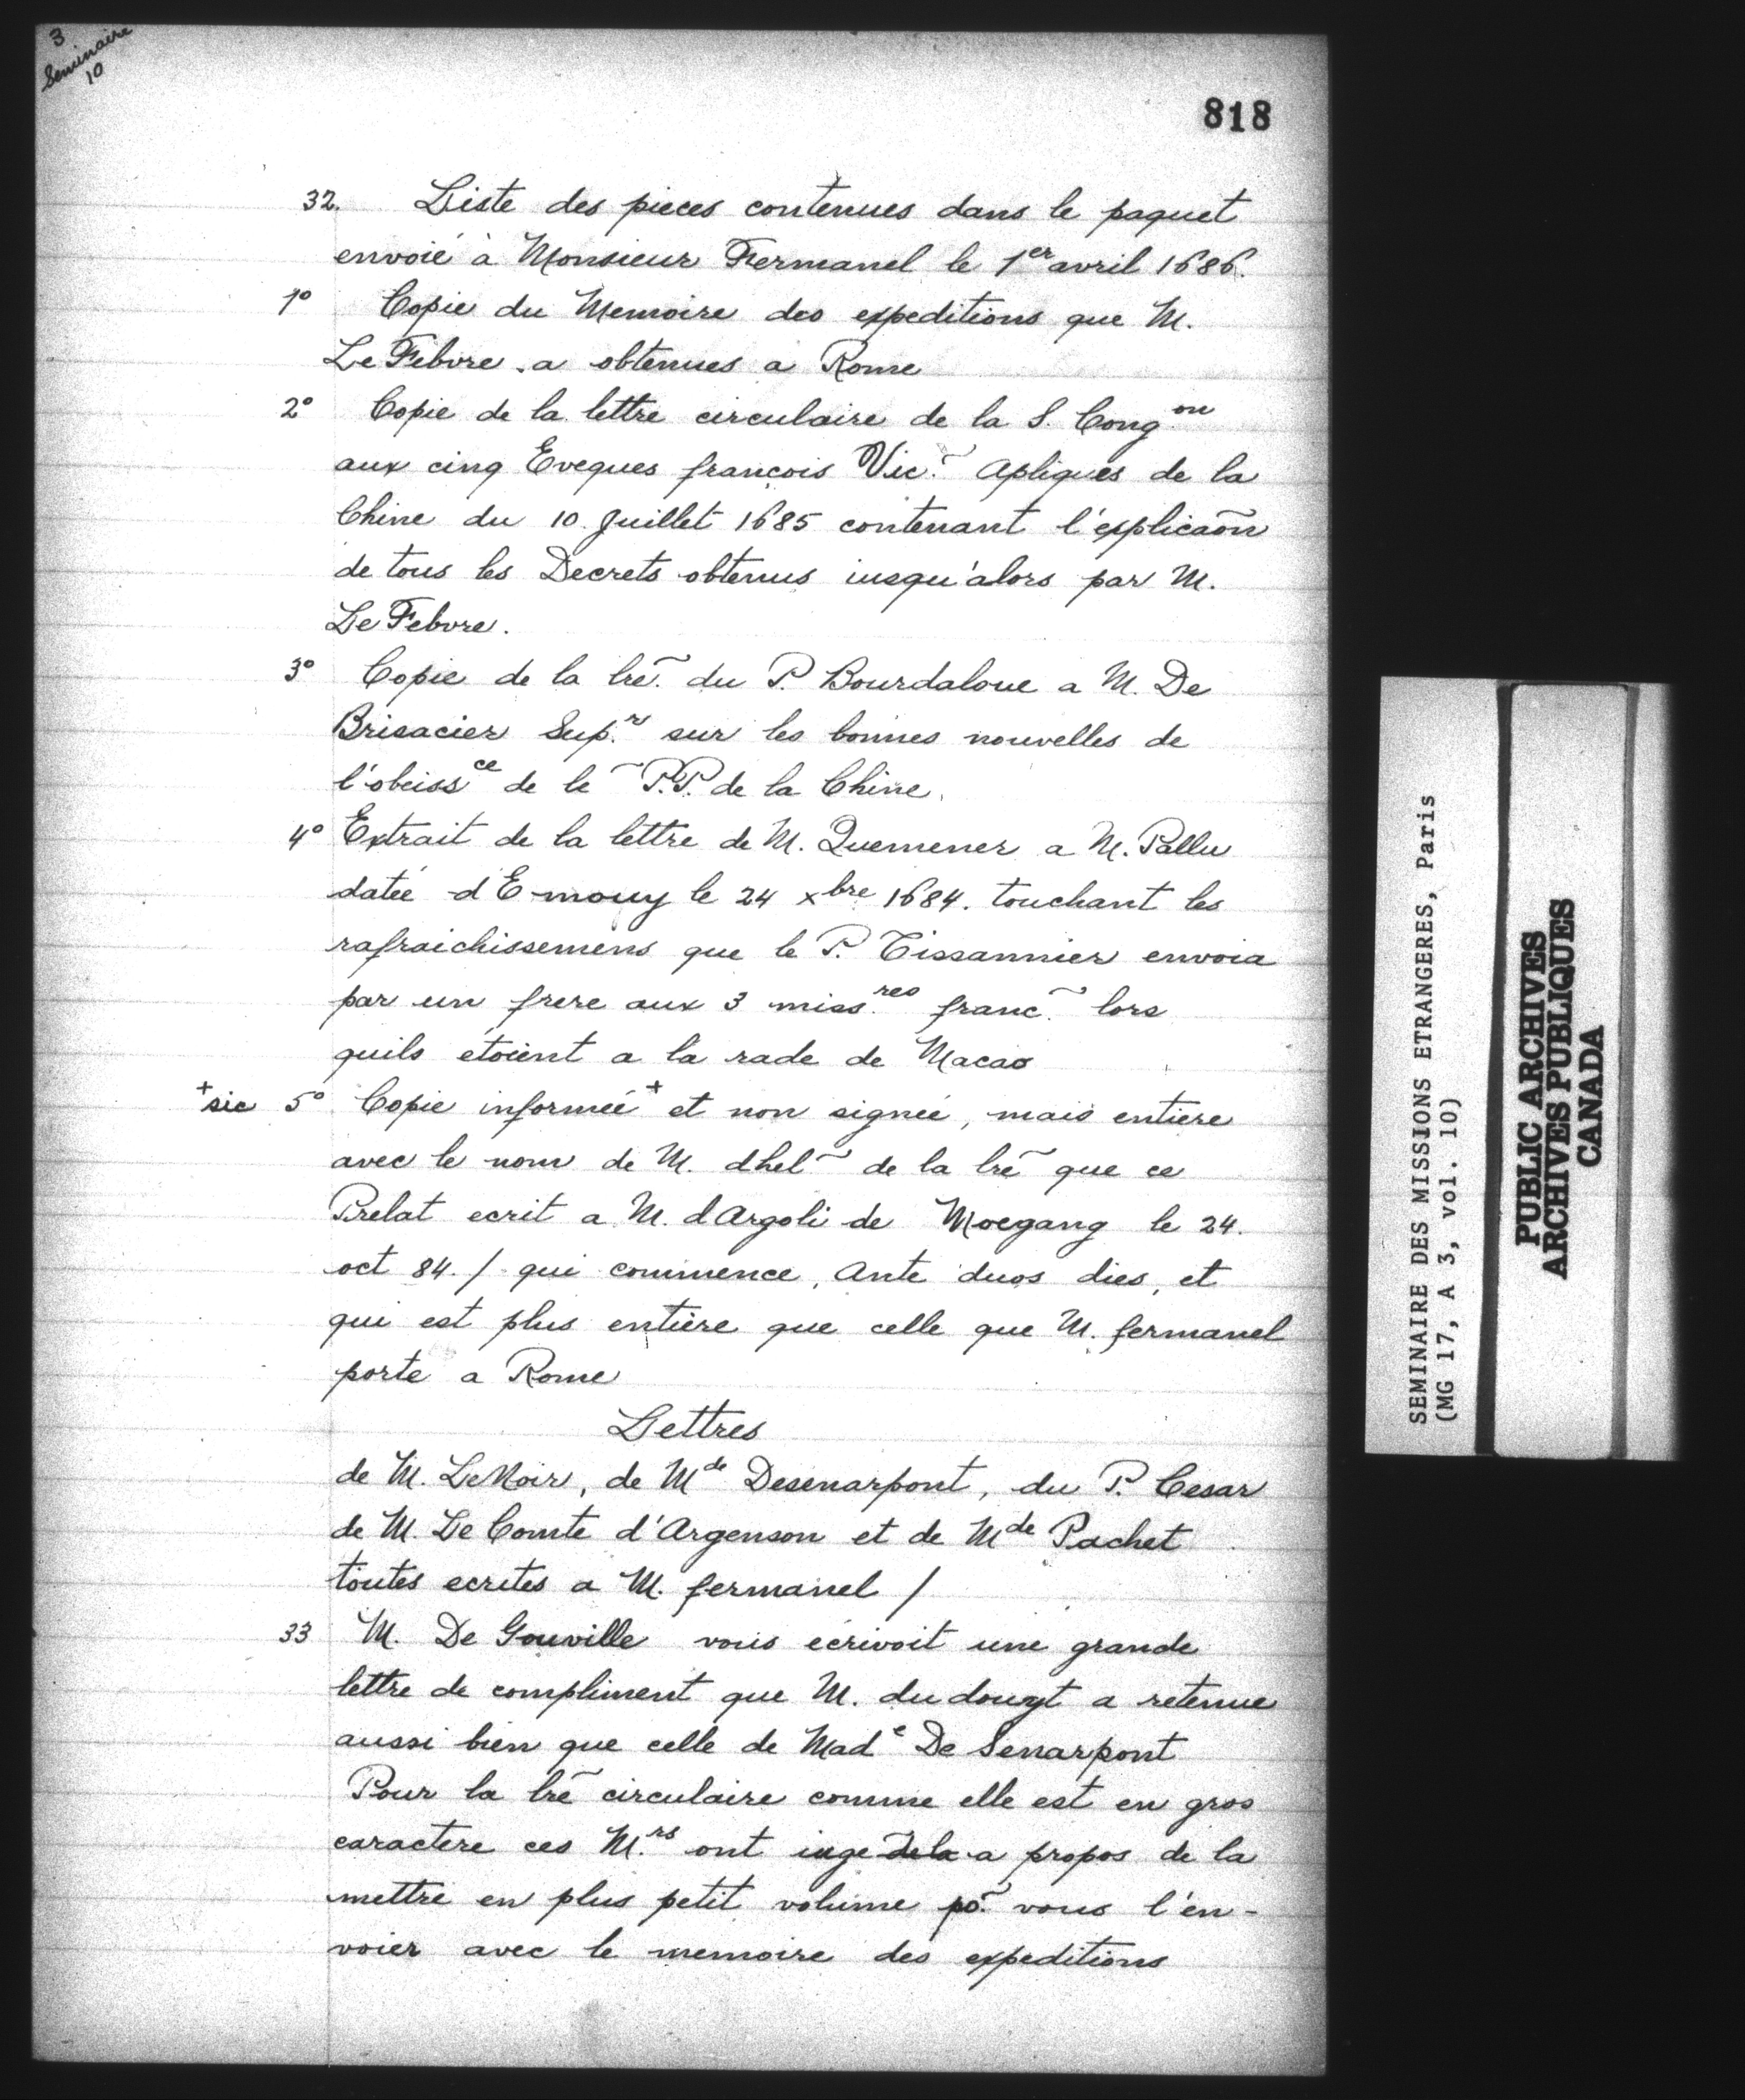 3
Seminaire
10
818
32. Liste des pieces contenues dans le paquet
envoié à Monsieur Fermanel le 1er avril 1686.
1º Copie du Memoire des expeditions que M.
Le Febvre a obtenues a Rome
2º Copie de la lettre circulaire de la S. Congon
aux cinq Eveques françois Vic.~ Apliques de la
Chine du 10 Juillet 1685 contenant l'explicaõn
de tous les Decrets obtenus iusqu'alors par M.
Le Febvre.
3º Copie de la lrẽ. du P. Bourdaloue a M. De
Brisacier Sup.r sur les bonnes nouvelles de
l'obeissce de le~ P.P. de la Chine.
4º Extrait de la lettre de M. Quemener a M. Pallu
datée d'Emouy le 24 xbre 1684. touchant les
rafraichissemens que le P. Tissannier envoia
par un frere aux 3 miss.res franc.~ lors
quils étoient a la rade de Macao
+sic 5º Copie informée+ et non signée, mais entiere
avec le nom de M. dhel~ de la lrẽ que ce
Prelat ecrit a M. dArgoli de Moegang le 24.
oct 84. / qui commence, Ante duos dies, et
qui est plus entière que celle que M. fermanel
porte a Rome
Lettres
de M. LeNoir, de Mde Desenarpont, du P. Cesar
de M. Le Comte d'Argenson et de Mde Pachet
toutes ecrites a M. fermanel /
33 M. De Gouville vous écrivoit une grande
lettre de compliment que M. du dougt a retenue
aussi bien que celle de Made De Senarpont
Pour la lrẽ circulaire comme elle est en gros
caractere ces M.rs ont iuge dela a propos de la
mettre en plus petit volume põ. vous l'en-
voier avec le memoire des expeditions
SEMINAIRE DES MISSIONS ETRANGERES, Paris
(MG 17, A 3, vol. 10)
PUBLIC ARCHIVES
ARCHIVES PUBLIQUES
CANADA